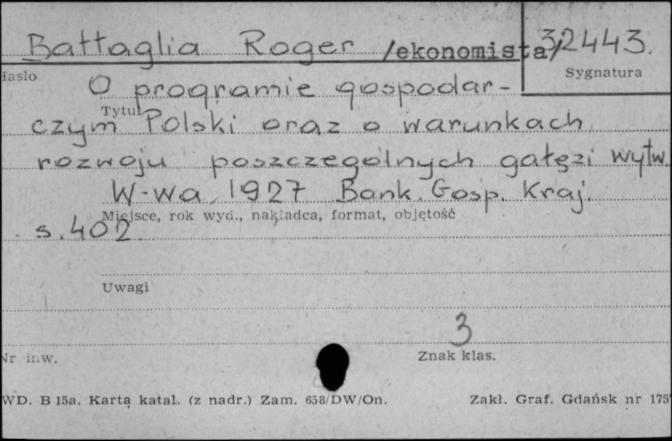 Battaglia Roger /ekonomista/
32443.
Hasło
Sygnatura
O programie gospodar-
Tytuł
czym Polski oraz o warunkach
rozwoju poszczególnych gałęzi wytw.
W-wa, 1927 Bank. Gosp. Kraj.
Miejsce, rok wyd., nakładca, format, objętość
s. 402
Uwagi
3
Nr inw.
Znak klas.
WD. B 15a. Karta katal. (z nadr.) Zam. 658/DW/On.
Zakł. Graf. Gdańsk nr 175